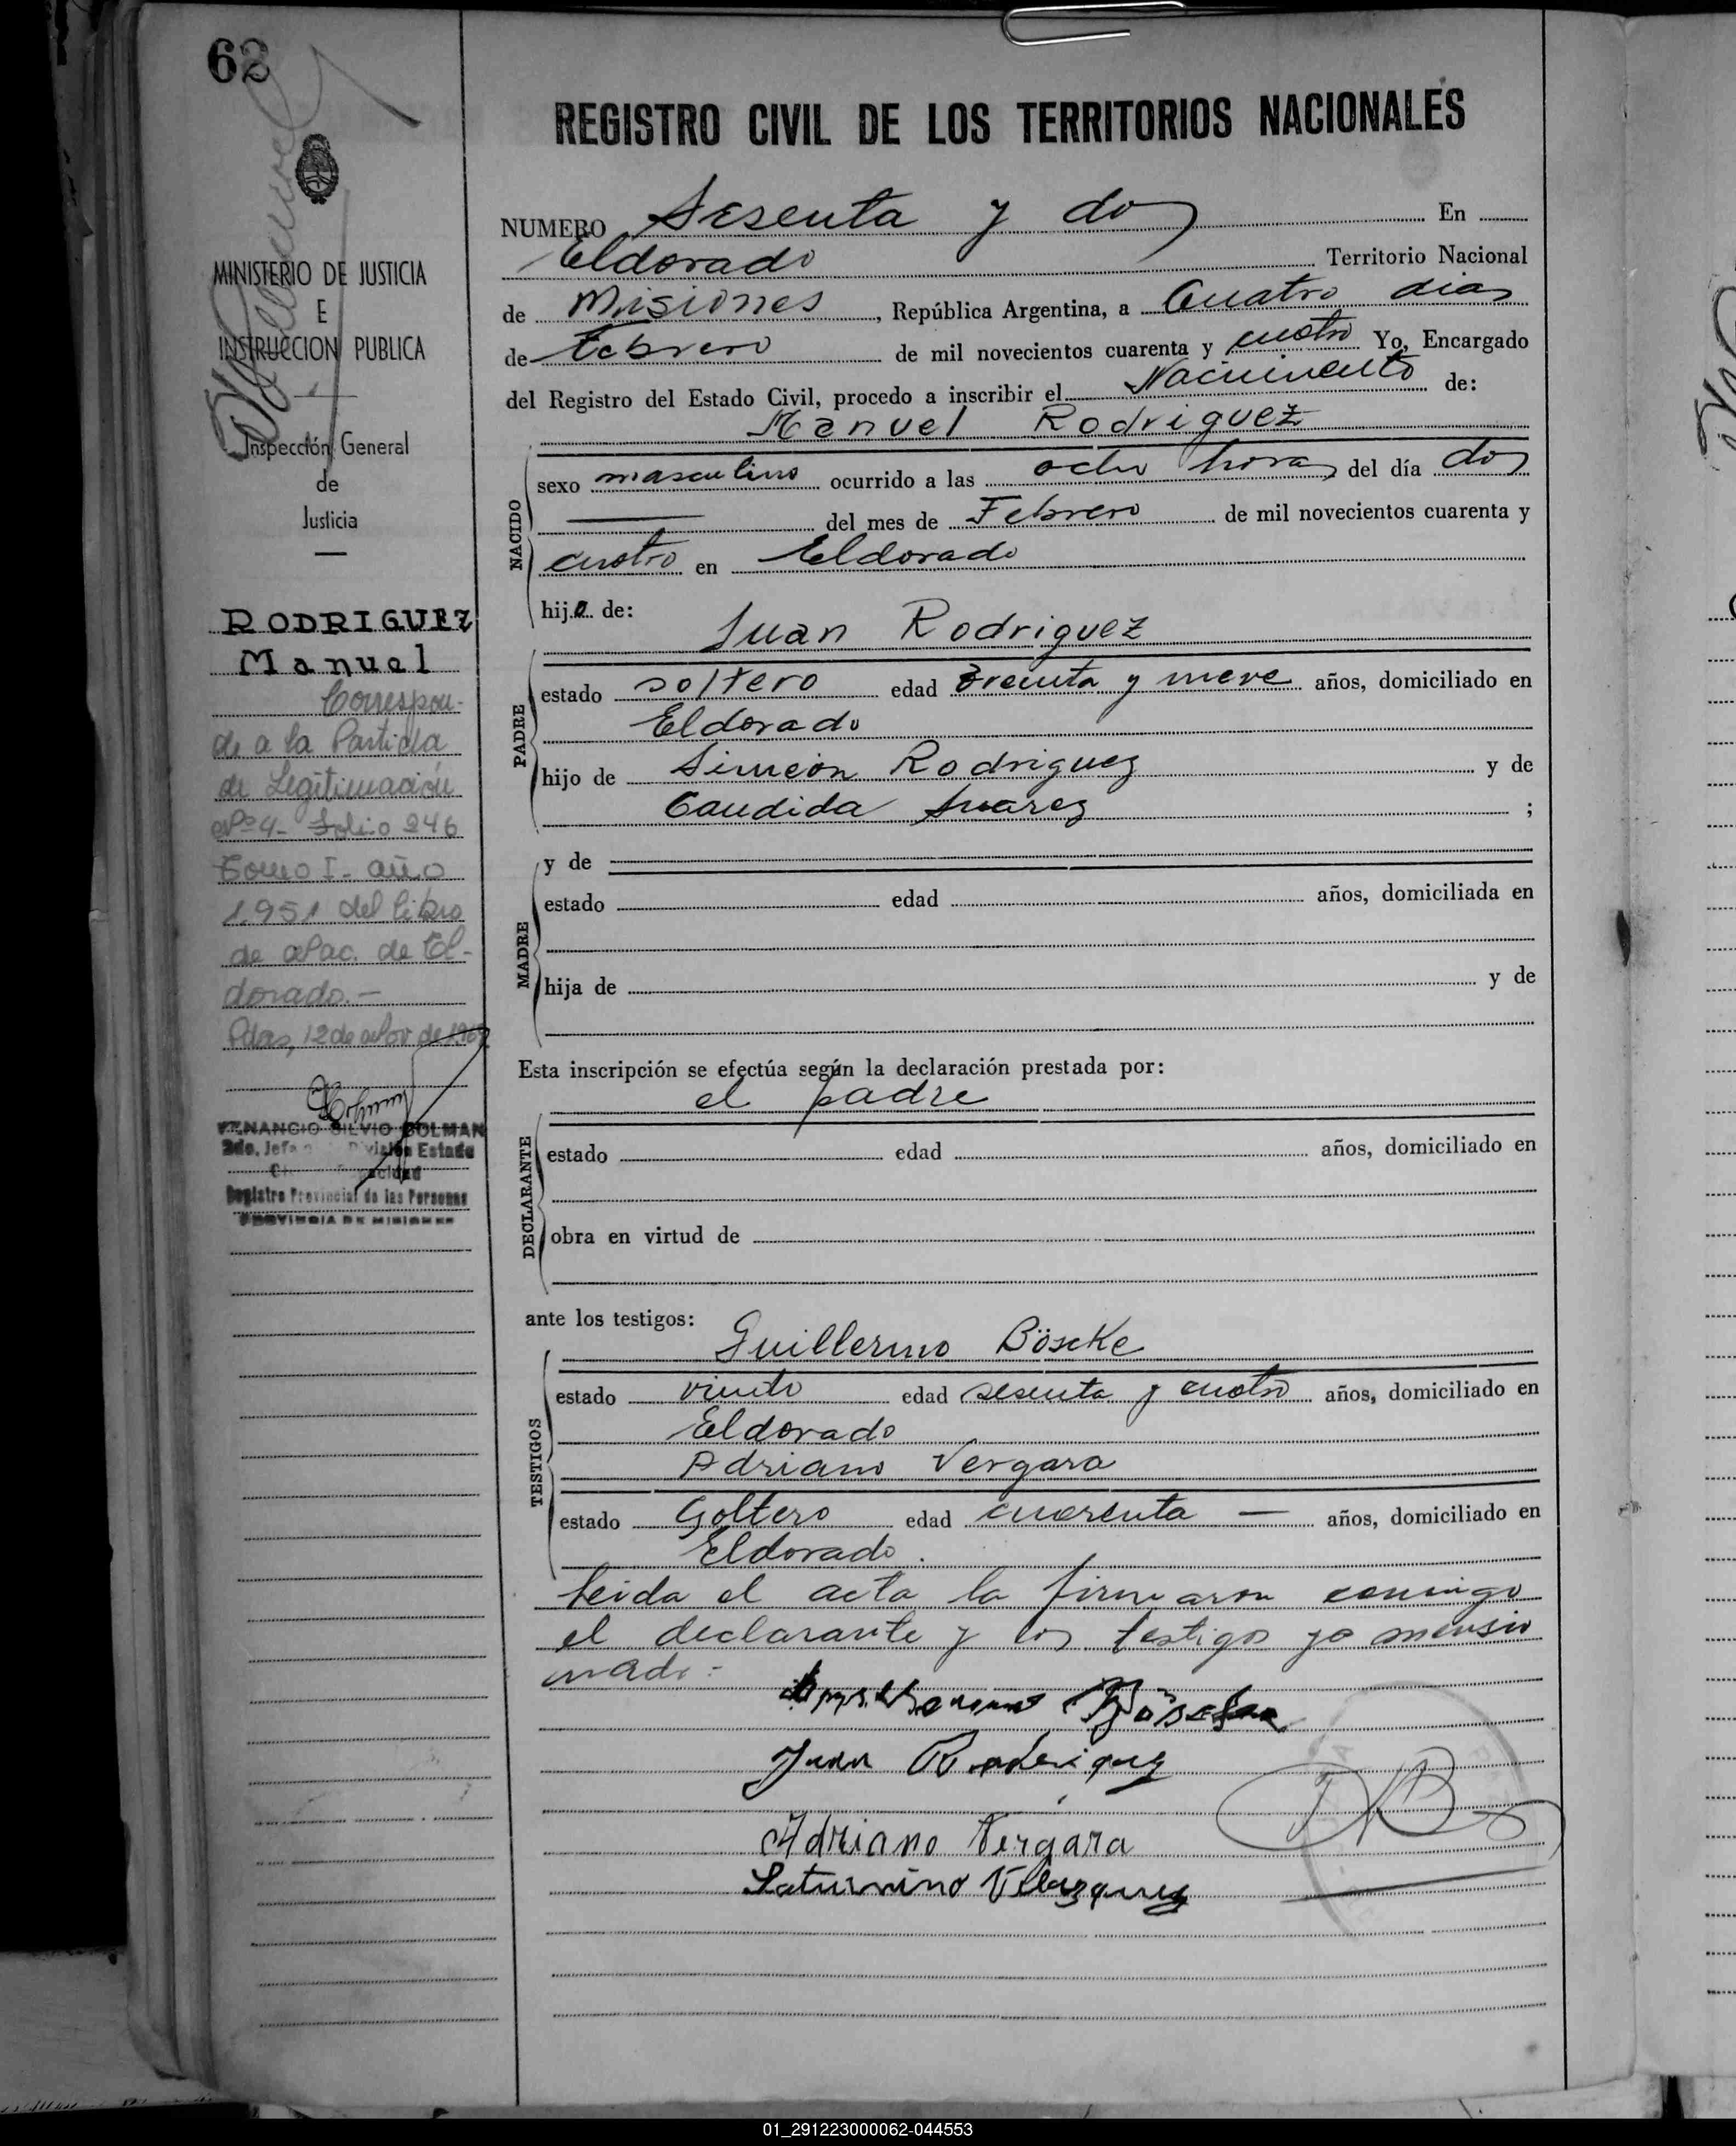 62
REGISTRO CIVIL DE LOS TERRITORIOS NACIONALES
MINISTERIO DE JUSTICIA
E
INSTRUCCION PUBLICA
Inspección General
de
Justicia
RODRIGUEZ
Manuel
Correspon-
de a la Partida
de Legitimación
Nº 4- Folio 246
Tomo I- año
1951 del libro
de Nac. de El-
dorado.-
Pdas, 12 de Nov de
VENANCIO SILVIO COLMAN
2do. Jefe División Estado
Registro Provincial de las Personas
PROVINCIA DE MISIONES
NUMERO Sesenta y dos En
Eldorado Territorio Nacional
de Misiones, República Argentina, a Cuatro dias
de Febrero de mil novecientos cuarenta y cuatro Yo, Encargado
del Registro del Estado Civil, procedo a inscribir el Nacimiento de:
Manuel Rodriguez
NACIDO
sexo masculino ocurrido a las ocho horas del día dos
del mes de Febrero de mil novecientos cuarenta y
cuatro en Eldorado
hijo de:
Juan Rodriguez
PADRE
estado soltero edad treinta y nueve años, domiciliado en
Eldorado
hijo de Simeón Rodriguez y de
Candida Suarez ;
MADRE
y de
estado edad años, domiciliada en
hija de y de
Esta inscripción se efectúa según la declaración prestada por:
el padre
DECLARANTE
estado edad años, domiciliado en
obra en virtud de
ante los testigos:
Guillermo Böscke
TESTIGOS
estado viudo edad sesenta y cuatro años, domiciliado en
Eldorado
Adriano Vergara
estado Soltero edad cuarenta — años, domiciliado en
Eldorado.
Leida el acta la firmaron conmigo
el declarante y los testigos ya mensio
nado:-
Juan Rodriguez
Adriano Vergara
Saturnino Velazquez
01_291223000062-044553